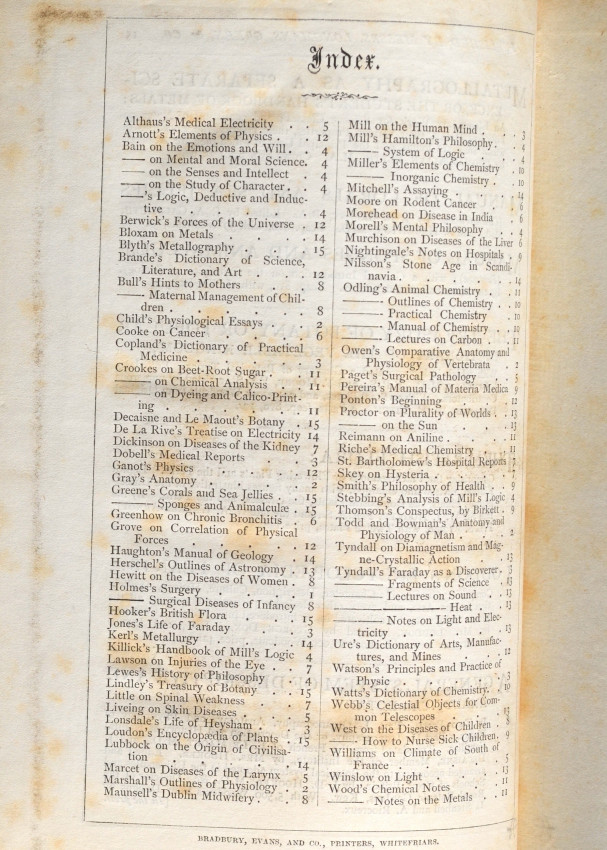 Index.
Althaus's Medical Electricity . . 5
Arnott's Elements of Physics . . 12
Bain on the Emotions and Will . . 4
—— on Mental and Moral Science. 4
—— on the Senses and Intellect . 4
—— on the Study of Character . . 4
——'s Logic, Deductive and Induc-
tive . . . . . 4
Berwick's Forces of the Universe . 12
Bloxam on Metals . . . . 14
Blyth's Metallography . . . . 15
Brande's Dictionary of Science,
Literature, and Art . . . 12
Bull's Hints to Mothers . . . 8
—— Maternal Management of Chil-
dren . . . . . . 8
Child's Physiological Essays . . 2
Cooke on Cancer . . . . 6
Copland's Dictionary of Practical
Medicine . . . . . 3
Crookes on Beet-Root Sugar . . . 11
—— on Chemical Analysis . . 11
—— on Dyeing and Calico-Print-
ing . . . . . . 11
Decaisne and Le Maout's Botany . 15
De La Rive's Treatise on Electricity 14
Dickinson on Diseases of the Kidney 7
Dobell's Medical Reports . . . 3
Ganot's Physics . . . . 12
Gray's Anatomy . . . . 2
Greene's Corals and Sea Jellies . . 15
—— Sponges and Animalculæ . 15
Greenhow on Chronic Bronchitis . 6
Grove on Correlation of Physical
Forces . . . . . 12
Haughton's Manual of Geology . 14
Herschel's Outlines of Astronomy . 13
Hewitt on the Diseases of Women . 8
Holmes's Surgery . . . . 1
—— Surgical Diseases of Infancy 8
Hooker's British Flora . . . 15
Jones's Life of Faraday . . . 3
Kerl's Metallurgy . . . . 14
Killick's Handbook of Mill's Logic 4
Lawson on Injuries of the Eye . . 7
Lewes's History of Philosophy . 4
Lindley's Treasury of Botany . . 15
Little on Spinal Weakness . . 7
Liveing on Skin Diseases . . . 7
Lonsdale's Life of Heysham . . 5
Loudon's Encyclopædia of Plants . 15
Lubbock on the Origin of Civilisa-
tion . . . . . 14
Marcet on Diseases of the Larynx . 5
Marshall's Outlines of Physiology . 2
Maunsell's Dublin Midwifery . . 8
Mill on the Human Mind . . . 3
Mill's Hamilton's Philosophy . . 4
—— System of Logic . . . 4
Miller's Elements of Chemistry . 10
—— Inorganic Chemistry . . 10
Mitchell's Assaying . . . . 14
Moore on Rodent Cancer . . . 6
Morehead on Disease in India . 6
Morell's Mental Philosophy . . 4
Murchison on Diseases of the Liver 6
Nightingale's Notes on Hospitals . 9
Nilsson's Stone Age in Scandi-
navia . . . . . . 14
Odling's Animal Chemistry . . 11
—— Outlines of Chemistry . . 10
—— Practical Chemistry . . 10
—— Manual of Chemistry . . 10
—— Lectures on Carbon . . 11
Owen's Comparative Anatomy and
Physiology of Vertebrata . . 2
Paget's Surgical Pathology . . 5
Pereira's Manual of Materia Medica 9
Ponton's Beginning . . . 12
Proctor on Plurality of Worlds . . 13
—— on the Sun . . . . 13
Reimann on Aniline . . . . 11
Riche's Medical Chemistry . . 11
St. Bartholomew's Hospital Reports
Skey on Hysteria . . . . 7
Smith's Philosophy of Health . . 9
Stebbing's Analysis of Mill's Logic 4
Thomson's Conspectus, by Birkett . 9
Todd and Bowman's Anatomy and
Physiology of Man . . . 2
Tyndall on Diamagnetism and Mag-
ne-Crystallic Action . . . 13
Tyndall's Faraday as a Discoverer . 3
—— Fragments of Science . 13
—— Lectures on Sound . . 13
—— Heat . . 13
—— Notes on Light and Elec-
tricity . . . . . 13
Ure's Dictionary of Arts, Manufac-
tures, and Mines . . . 12
Watson's Principles and Practice of
Physic . . . . . 3
Watts's Dictionary of Chemistry. . 10
Webb's Celestial Objects for Com-
mon Telescopes . . . 13
West on the Diseases of Children . 8
—— How to Nurse Sick Children . 9
Williams on Climate of South of
France . . . . . 5
Winslow on Light . . . . 13
Wood's Chemical Notes . . . 11
—— Notes on the Metals . . 11
BRADBURY, EVANS, AND CO., PRINTERS, WHITEFRIARS.